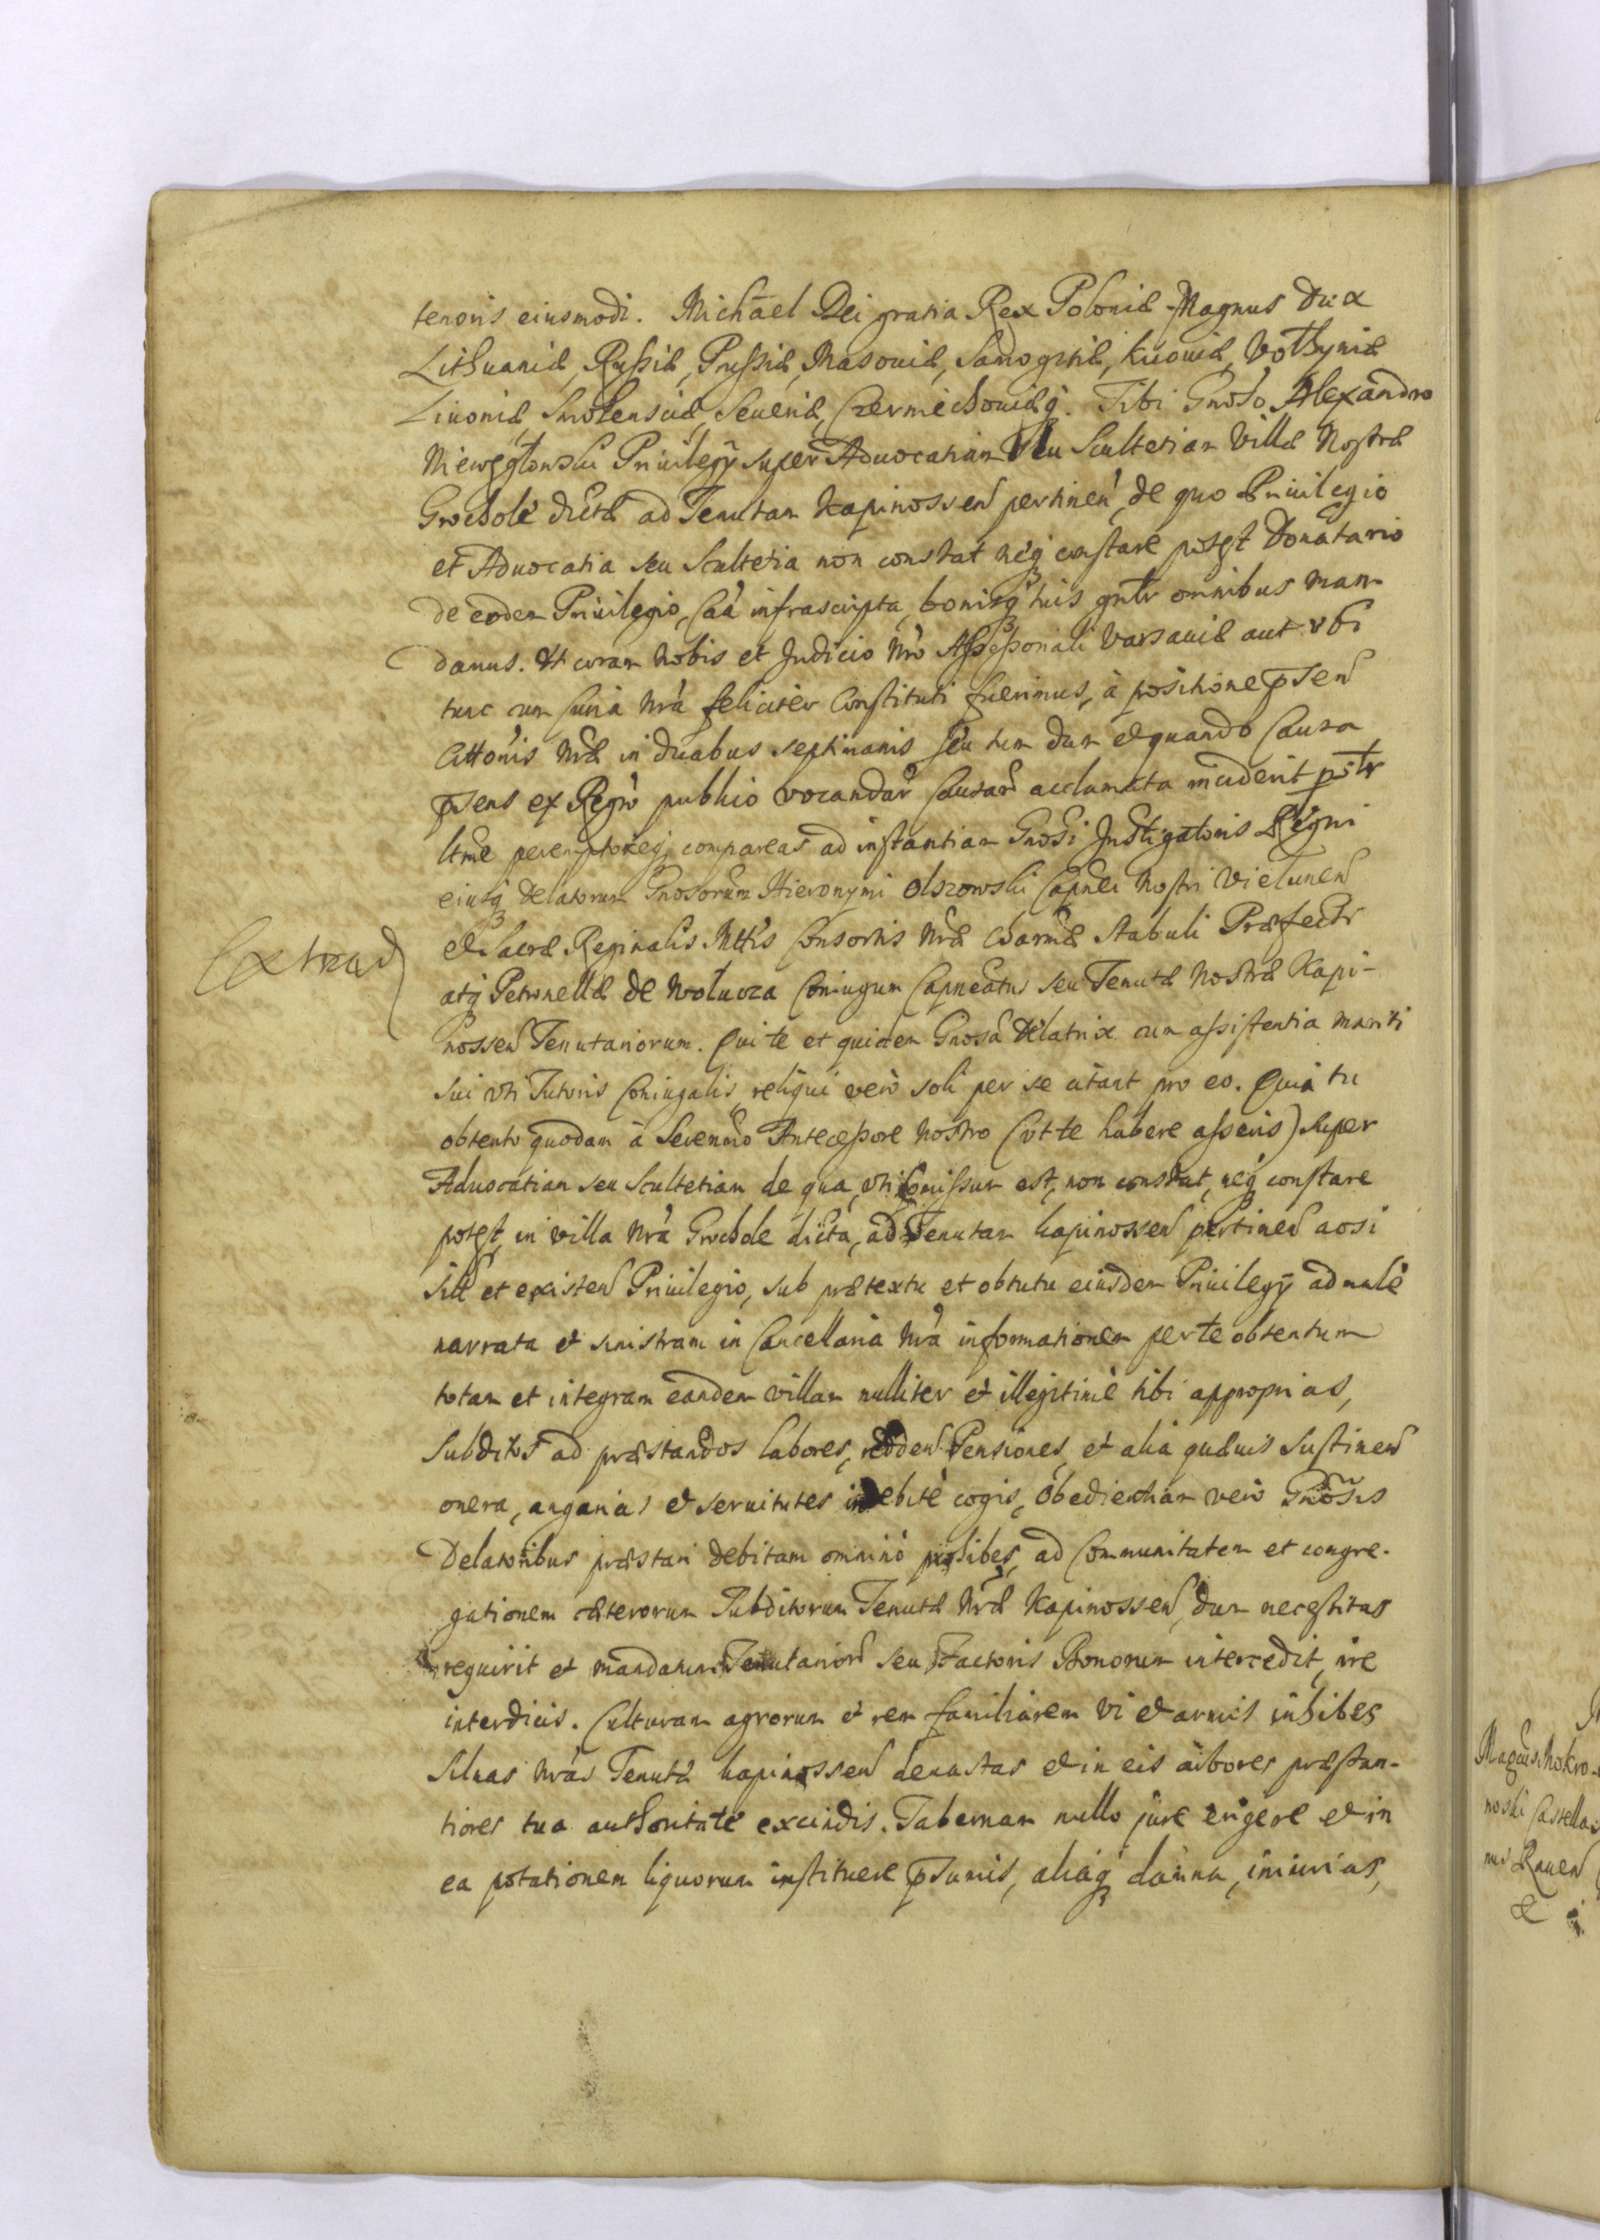 tenoris eiusmodi. Michael Dei gratia Rex Poloniæ Magnus Dux
Lithuaniæ, Russiæ, Prussiæ, Masoviæ, Samogitiæ, Kiioviæ, Volhyniæ
Livoniæ Smolensciæ, Seueriæ, Czerniechoviæq. Tibi Gnoso Alexandro
Niewęgłowski Priuilegÿ super Aduocatiam seu Scultetiam Villæ Nostræ
Grochole dictæ ad Tenutam Kapinossen pertinen, de quo Priuilegio
et Aduocatia seu Scultetia non constat neq constare potest Donatario
de eodem Priuilegio, Caâ infrascripta, bonisq tuis gnlr omnibus man
damus. Vt coram Nobis et Judicio Nro Assessoriali Varsauiæ aut vbi
tunc cum Curia Nrâ feliciter constituti fuerimus, à positione psen
Cittonis Nræ in duabus septimanis seu tum dum et quando Causa
psens ex Regro publico vocandar Causar acclamata inciderit psltr
ltme peremptorieq compareas ad instantiam Gnosi Instigatoris Regni
eiusq Delatorum Gnosorum Hieronymi Olszowski Capnei Nostri Vielunen
et Sacræ Reginalis Mttis Consortis Nræ charmæ Stabuli Præfecti
Extrad
atq Petronellæ de Wolucza Coniugum Capneatus seu Tenutæ Nostræ Kapi-
nossen Tenutariorum. Qui te et quidem Gnosa Delatrix cum assistentia mariti
sui vti Tutoris Coniugalis, reliqui verò soli per se citant pro eo. Quia tu
obtento quodam à Serenmo Antecessore Nostro (vt te habere asseris) super
Aduocatiam seu Scultetiam de qua, vti pmissum est, non constat, neq constare
potest, in villa Nrâ Grochole dicta, ad Tenutam Kapinossen pertinen
sitt et existen Priuilegio, sub prætextu et obtutu eiusdem Priuilegÿ ad male
narrata et sinistram in Cancellaria Nrâ informationem per te obtentum
totam et integram eandem villam nulliter et illegitimè tibi approprias,
Subditos ad præstandos labores, redden Pensiones, et alia quæuis sustinen
onera, angarias et seruitutes indebitè cogis, obedientiam verò Gnosis
Delatoribus præstari debitam omninò prohibes, ad Communitatem et congre-
gationem cæterorum Subditorum Tenutæ Nræ Kapinossen, dum necessitas
requirit et mandatum Tenutarior seu Factoris Bonorum intercedit, ire
interdicis. Culturam agrorum et rem familiarem vi et armis inhibes
Siluas Nras Tenutæ Kapinossen deuastas et in eis arbores præstan-
tiores tua authoritate excindis. Tabernam nullo jure erigere et in
ea potationem liquorum instituere psumis, aliaq damna, iniurias,
Magnus Mokro-
noski Castella-
nus Rauen
&